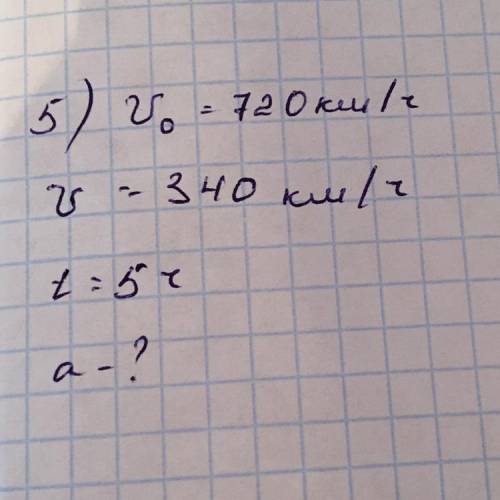 5) v₀ = 720 км/ч
v = 340 км/ч
t = 5 ч
a - ?